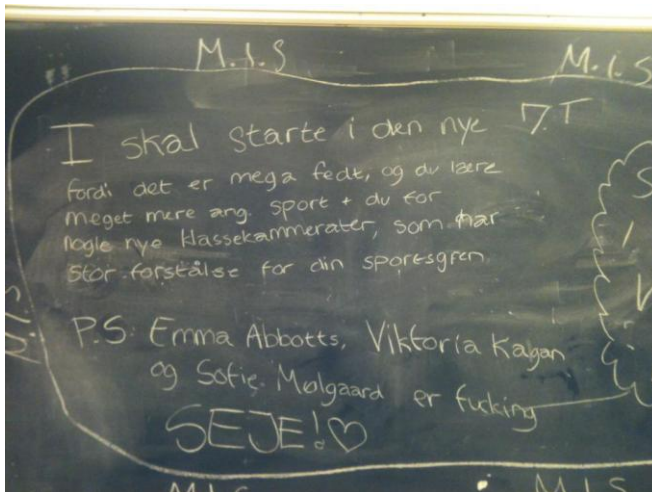 M.I.S M.I.S
I skal starte i den nye 7.T
fordi det er mega fedt, og du lære
meget mere ang. sport + du for
nogle nye klassekammerater, som har
stor forstålse for din sportsgren.
M.I.S
P.S: Emma Abbotts, Viktoria Kagan
og Sofie Mølgaard er fucking
SEJE!♡
M.I.S M.I.S